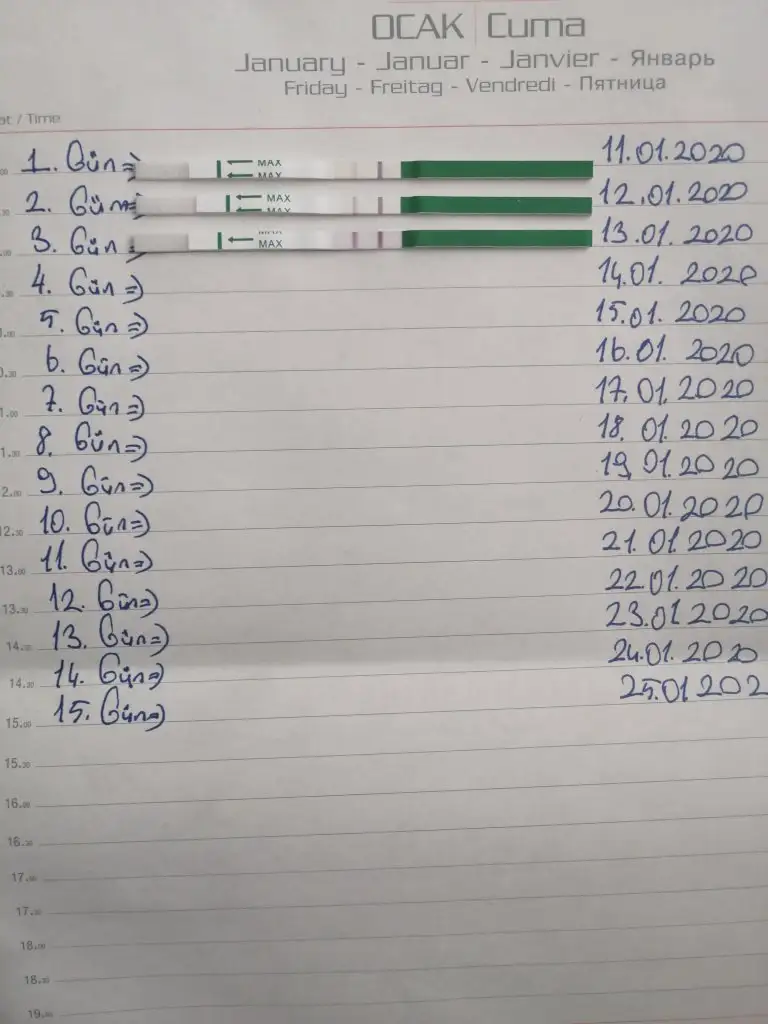 OCAK Cuma
January - Januar - Janvier - Январь
Friday - Freitag - Vendredi - Пятница
/ Time
1. Gün => MAX MAX 11.01.2020
2. Gün => MAX MAX 12.01.2020
3. Gün MAX 13.01.2020
4. Gün => 14.01.2020
5. Gün => 15.01.2020
6. Gün => 16.01.2020
7. Gün => 17.01.2020
8. Gün => 18.01.2020
9. Gün => 19.01.2020
10. Gün => 20.01.2020
11. Gün => 21.01.2020
12. Gün => 22.01.2020
13. Gün => 23.01.2020
14. Gün => 24.01.2020
15. Gün => 25.01.202
12.30
13.00
13.30
14.00
14.30
15.00
15.30
16.00
16.30
17.00
17.30
18.00
18.30
19.00